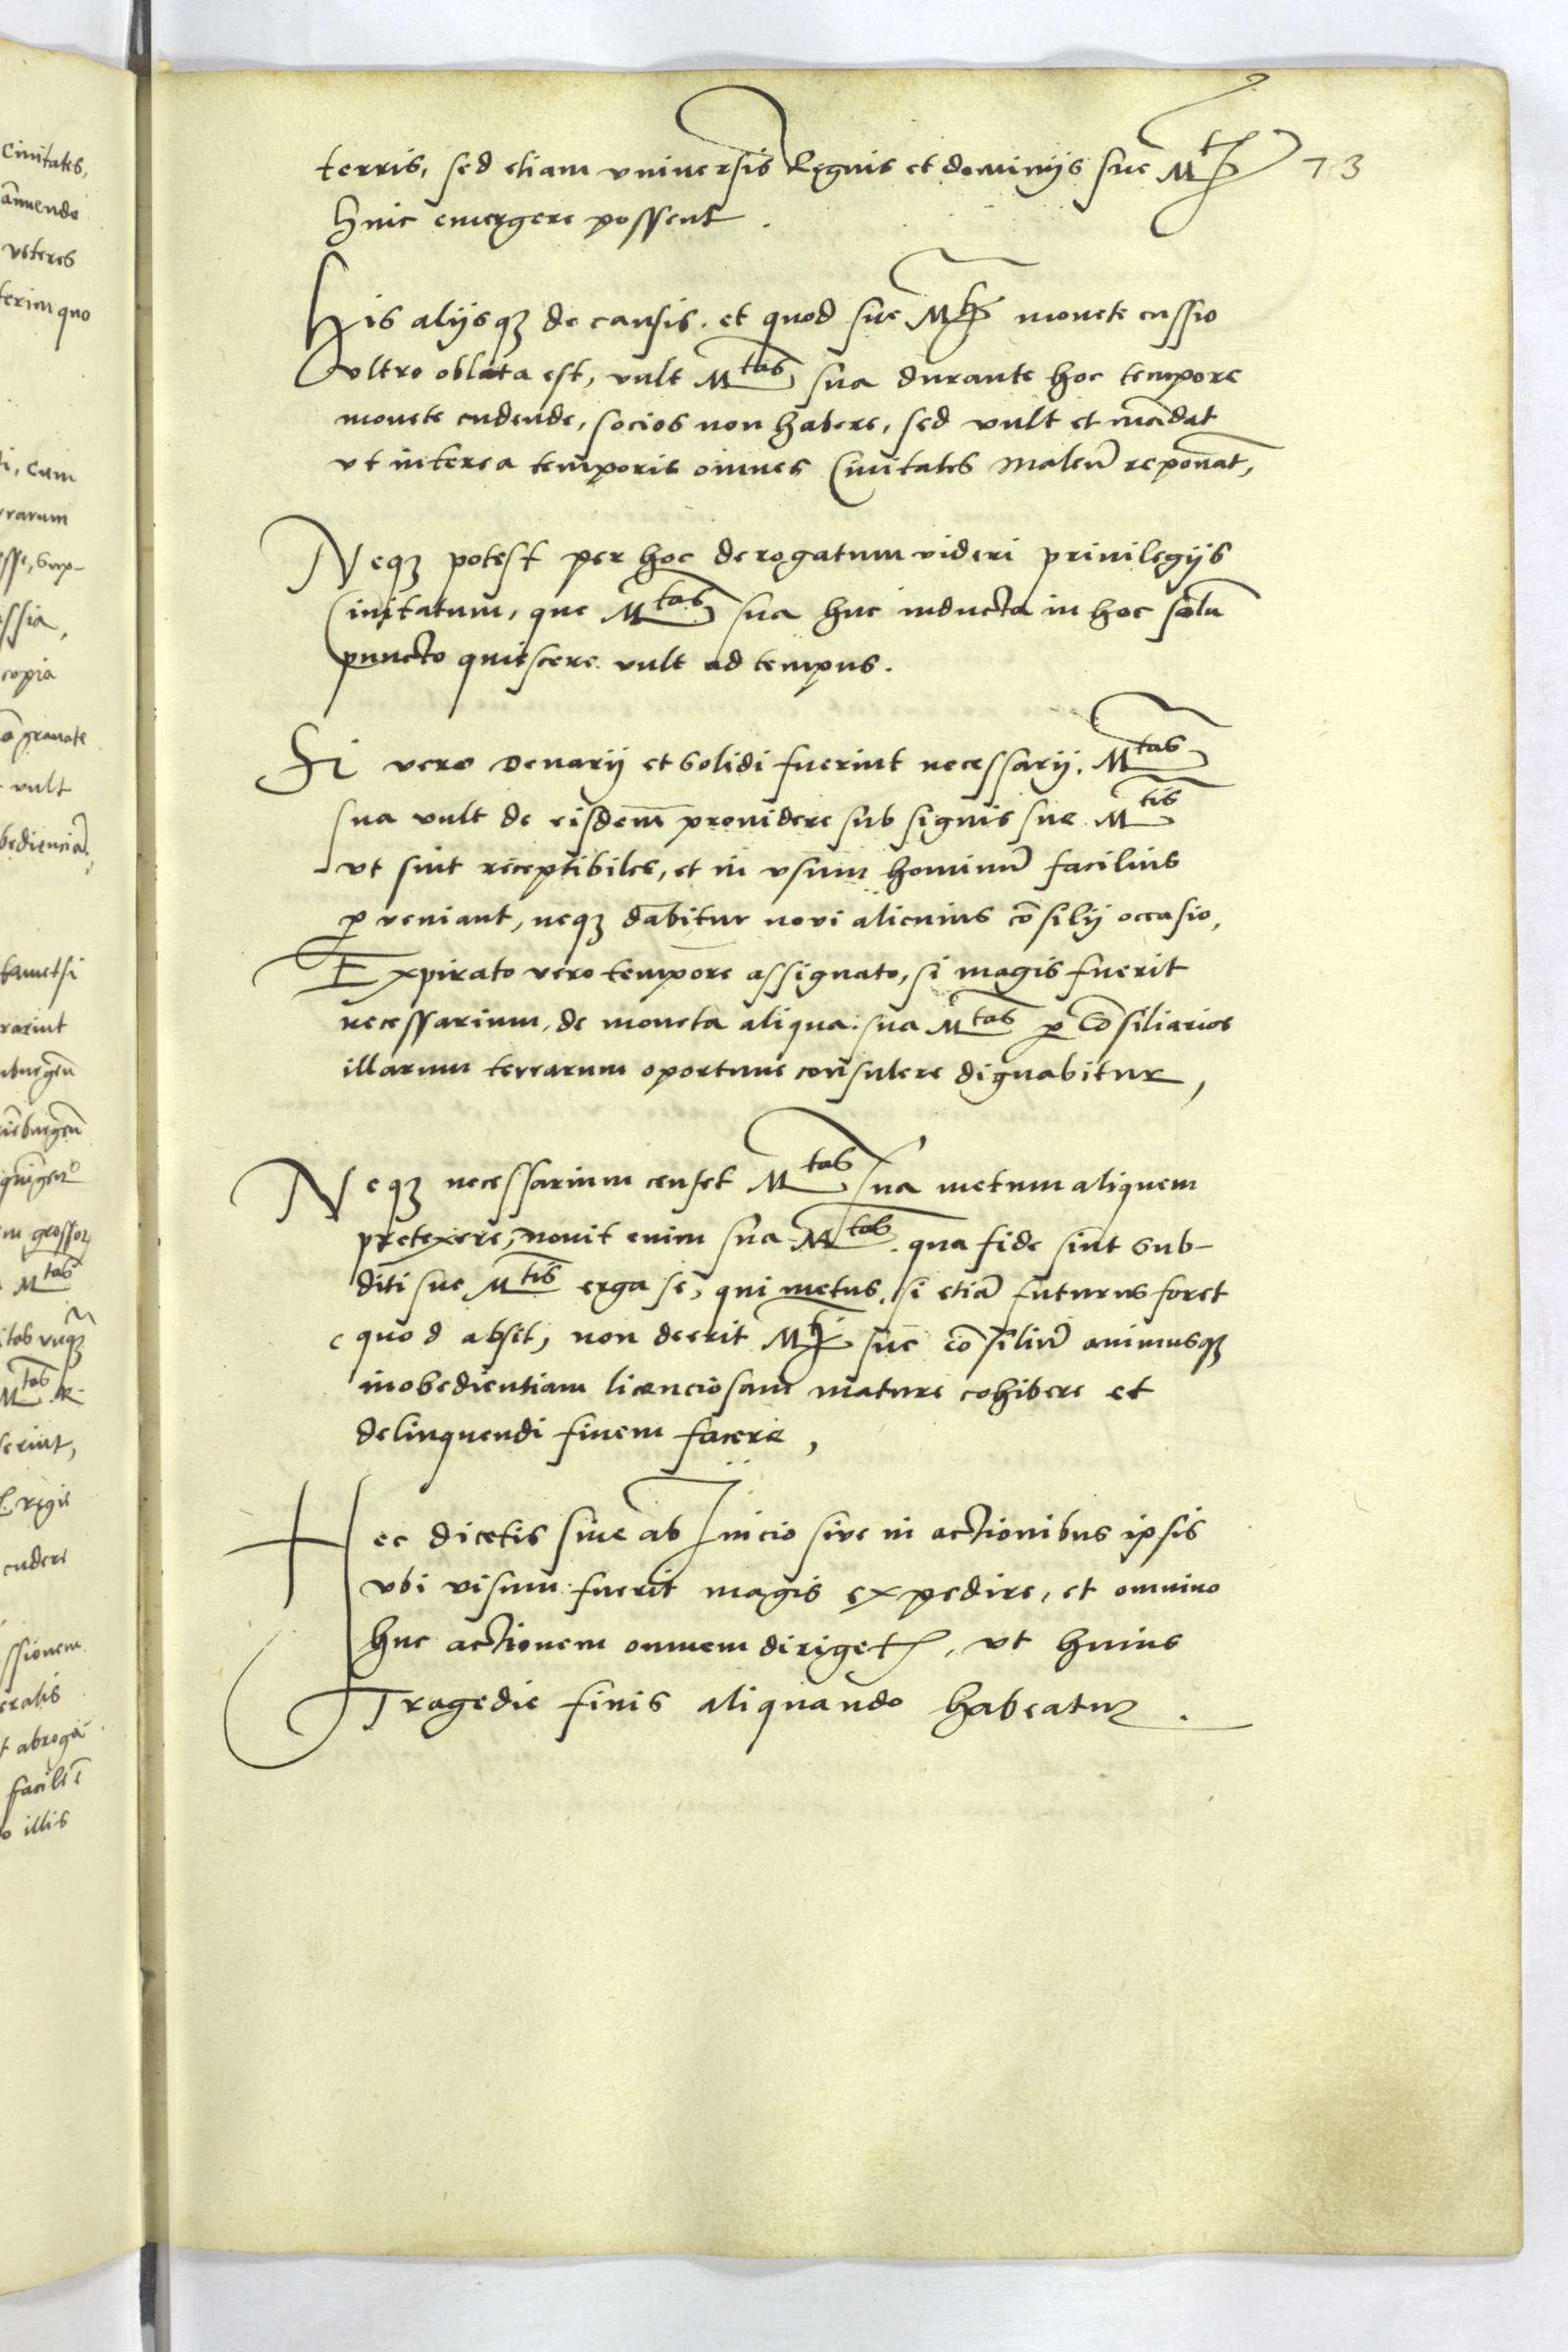 terris, sed etiam vniuersis Regnis et dominijs sue Mtis 73
huic emergere possent.
His alijsqꝫ de causis. et quod sue Mti monete cussio
vltro oblata est, vult Mtas sua durante hoc tempore
monete cudende, socios non habere, sed vult et mādat
vt interea temporis omnes Ciuitates Maleū reponāt,
Neqꝫ potest per hoc derogatum videri priuilegijs
Ciuitatum, que Mtas sua huc inducta in hoc solū
puncto quiescere vult ad tempus.
Si vero Denarij et Solidi fuerint necessarij. Mtas
sua vult de eisdem prouidere sub signis sue Mtis
vt sint receptibiles, et in vsum hominū facilius
ꝑueniant, neqꝫ dabitur noui alicuius cōsilij occasio,
Expirato vero tempore assignato, si magis fuerit
necessarium, de moneta aliqua sua Mtas ꝑ Cōsiliarios
illarum terrarum oportune consulere dignabitur,
Neqꝫ necessarium censet Mtas Sua metum aliquem
pretexere, nouit enim sua Mtas. qua fide sint Sub-
diti sue Mtis erga se, qui metus, si etiā futurus foret
quod absit, non deerit Mti sue cōsiliū animusqꝫ
inobedientiam licenciosam mature cohibere et
delinquendi finem facere,
Hec dicetis siue ab Inicio siue in actionibus ipsis
vbi visum fuerit magis expedire, et omnino
huc actionem omnem dirigetis, vt huius
Tragedie finis aliquando habeatur.
Ciuitates,
annuendo
veteres
terim quo
ti, Cum
rrarum
esse, Sup-
ssia,
copia
grauate
vult
bediencia
tametsi
rarint
Mtas
Mtas R.
serint,
regis
cudere
ssionem
eratis
t abroga
o illis